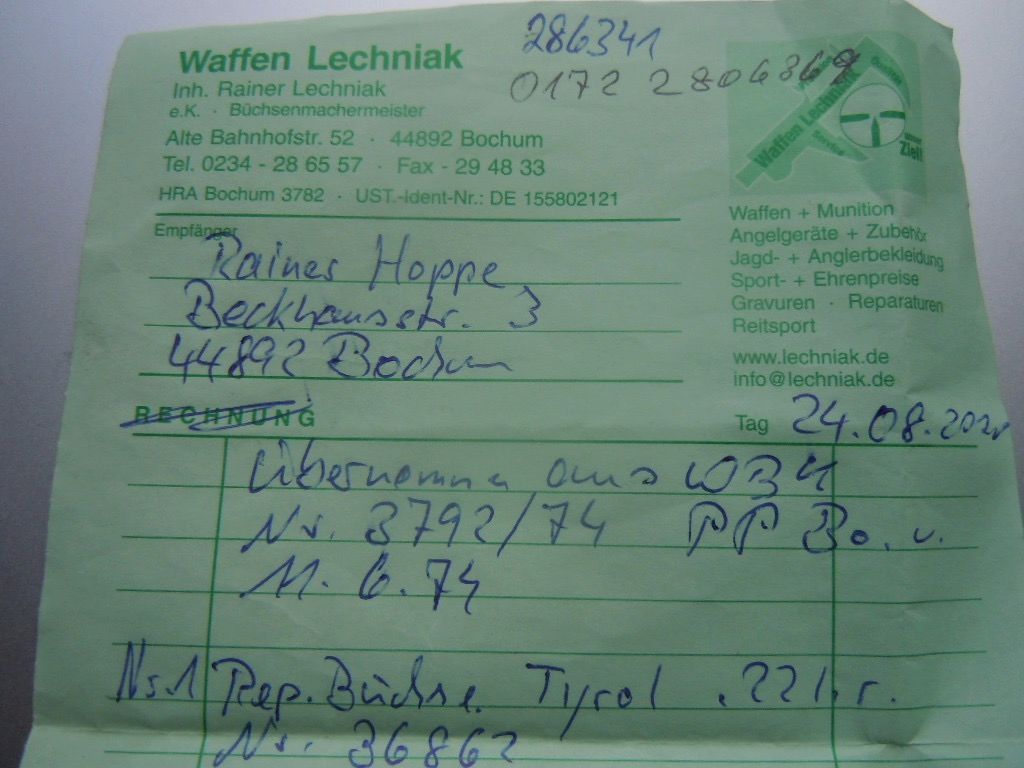 286341
0172 2806869
Waffen Lechniak
Inh. Rainer Lechniak
e.K. · Büchsenmachermeister
Alte Bahnhofstr. 52 · 44892 Bochum
Tel. 0234 - 28 65 57 · Fax - 29 48 33
HRA Bochum 3782 · UST.-Ident-Nr.: DE 155802121
Waffen Lechniak
Service
Ziel!
Waffen + Munition
Angelgeräte + Zubehör
Jagd- + Anglerbekleidung
Sport- + Ehrenpreise
Gravuren · Reparaturen
Reitsport
www.lechniak.de
info@lechniak.de
Empfänger
Rainer Hoppe
Beckhausstr. 3
44892 Bochum
RECHNUNG
Tag 24.08.
aus WBK
Nr. 3792/74 PP Bo. v.
11. 6. 74
Nr. 1 Rep. Büchse Tyrol .22 l. r.
Nr. 36862